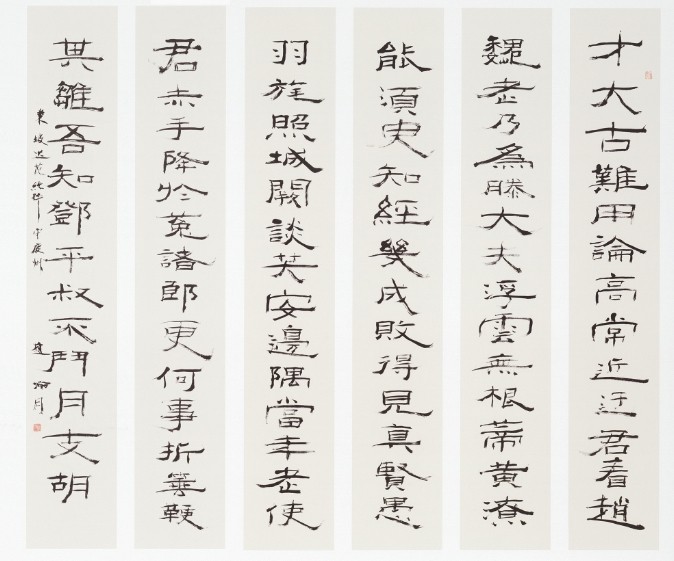 才大古難用論高常近迂君看趙
魏老乃爲滕大夫浮雲無根蒂黃潦
能須臾知經幾成敗得見真賢愚
羽旄照城闕談笑安邊隅當年老使
君赤手降於菟諸郎更何事折箠鞭
其雛吾知鄧平叔不鬥月支胡
東坡送范純粹守慶州